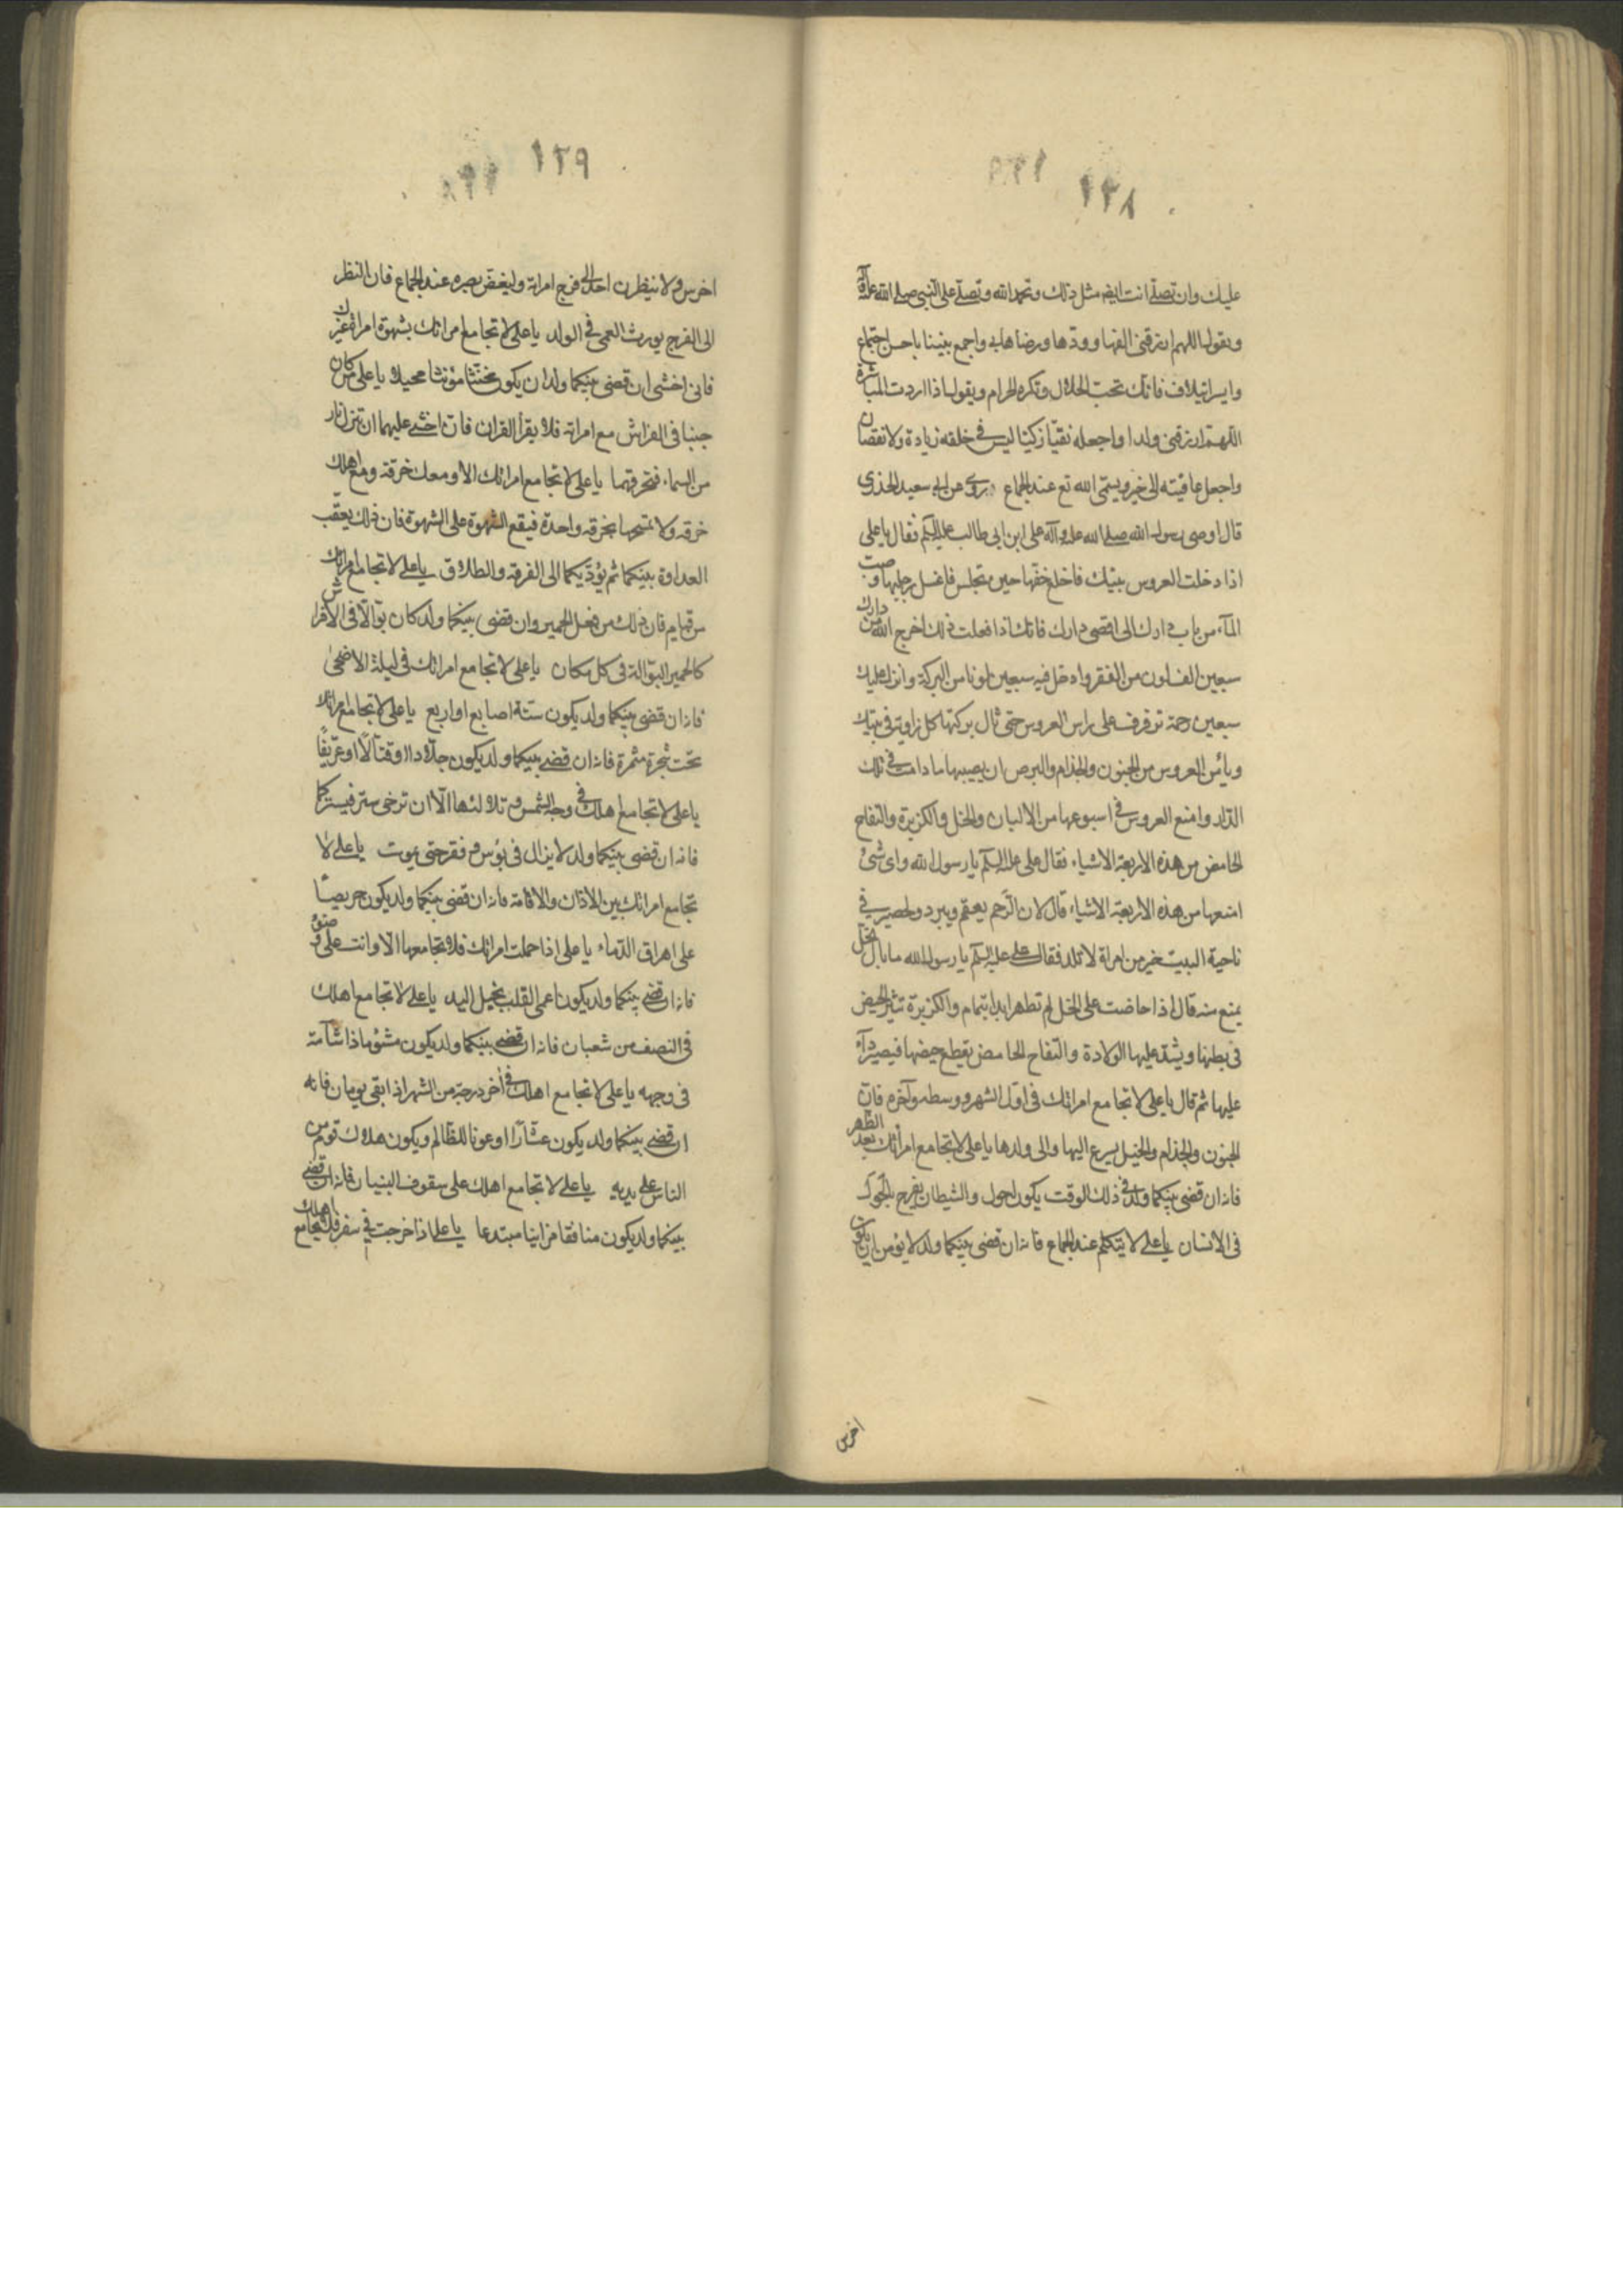 ١٣٨
عليك وان تصلى انت ايضا مثل ذلك وتحمد الله وتصلى على النبى صلى الله عليه وآله
وتقول اللهم ارزقنى الفها وودها ورضاها بى واجمع بيننا باحسن اجتماع
وايسر ائتلاف فانك تحب الحلال وتكره الحرام ويقول اذا اردت المباشرة
اللهم ارزقنى ولدا واجعله نقيا زكيا ليس فى خلقه زيادة ولا نقصان
واجعل عاقبته الى خير ويسمى الله تع عند الجماع روى عن ابى سعيد الخدرى
قال اوصى رسول الله صلى الله عليه وآله على ابن ابى طالب عليه السلم فقال يا على
اذا دخلت العروس بيتك فاخلع خفها حين تجلس فاغسل رجليها وصبت
المآء من باب دارك الى اقصى دارك فانك اذا فعلت ذلك اخرج الله من دارك
سبعين الف لون من الفقر وادخل فيه سبعين لونا من البركة وانزل عليك
سبعين رحمة ترفرف على راس العروس حتى تنال بركتها كل زاوية فى بيتك
ويأمن العروس من الجنون والجذام والبرص ان يصيبها ما دامت فى تلك
الدار وامنع العروس فى اسبوعها من الالبان والخل والكزبرة والتفاح
الحامض من هذه الاربعة الاشياء فقال على عليه السلم يا رسول الله واى شئ
امنعها من هذه الاربعة الاشياء قال لان الرحم يعقم ويبرد ولحصير فى
ناحية البيت خير من امراة لا تلد فقال على عليه السلم يا رسول الله ما بال الخل
يمنع منه قال اذا حاضت على الخل لم تطهر ابدا بتمام والكزبرة تثير الحيض
فى بطنها ويشد عليها الولادة والتفاح الحامض يقطع حيضها فيصير دآء
عليها ثم قال يا على لا تجامع امراتك فى اول الشهر ووسطه وآخره فان
الجنون والجذام والخبل يسرع اليها والى ولدها يا على لا تجامع امرأتك بعد الظهر
فانه ان قضى بينكما ولد فى ذلك الوقت يكون احول والشيطان يفرح بالحول
فى الانسان يا على لا يتكلم عند الجماع فانه ان قضى بينكما ولد لا يؤمن ان يكون
اخرس
١٣٩
اخرس ولا ينظرن احد الى فرج امراته وليغض بصره عند الجماع فان النظر
الى الفرج يورث العمى فى الولد يا على لا تجامع امراتك بشهوة امراة غيرك
فانى اخشى ان قضى بينكما ولد ان يكون مخنثا مؤنثا مخبلا يا على من كان
جنبا فى الفراش مع امراته فلا يقرأ القران فان اخشى عليهما ان تنزل نار
من السماء فتحرقهما يا على لا تجامع امراتك الا ومعك خرقة ومع اهلك
خرقة ولا تمسحها بخرقة واحدة فيقع الشهوة على الشهوة فان ذلك يعقب
العداوة بينكما ثم يؤديكما الى الفرقة والطلاق يا على لا تجامع امراتك
من قيام فان ذلك من فعل الحمير وان قضى بينكما ولد كان بوالا فى الفراش
كالحمير البوالة فى كل مكان يا على لا تجامع امراتك فى ليلة الاضحى
فانه ان قضى بينكما ولد يكون ستة اصابع او اربع يا على لا تجامع امراتك
تحت شجرة مثمرة فانه ان قضى بينكما ولد يكون جلادا او قتالا او عريفا
يا على لا تجامع اهلك فى وجه الشمس وتلالئها الا ان ترخى ستر فيستركما
فانه ان قضى بينكما ولد لا يزال فى بؤس وفقر حتى يموت يا على لا
تجامع امراتك بين الاذان والاقامة فانه ان قضى بينكما ولد يكون حريصا
على اهراق الدماء يا على اذا حملت امراتك فلا تجامعها الا وانت على وضوء
فانه ان قضى بينكما ولد يكون اعمى القلب بخيل اليد يا على لا تجامع اهلك
فى النصف من شعبان فانه ان قضى بينكما ولد يكون مشؤما ذا شآمة
فى وجهه يا على لا تجامع اهلك فى آخر درجة من الشهر اذا بقى يومان فانه
ان قضى بينكما ولد يكون عشارا او عونا للظالم ويكون هلاك قوم من
الناس على يديه يا على لا تجامع اهلك على سقوف البنيان فانه ان قضى
بينكما ولد يكون منافقا مرائيا مبتدعا يا على اذا خرجت فى سفر فلا تجامع اهلك